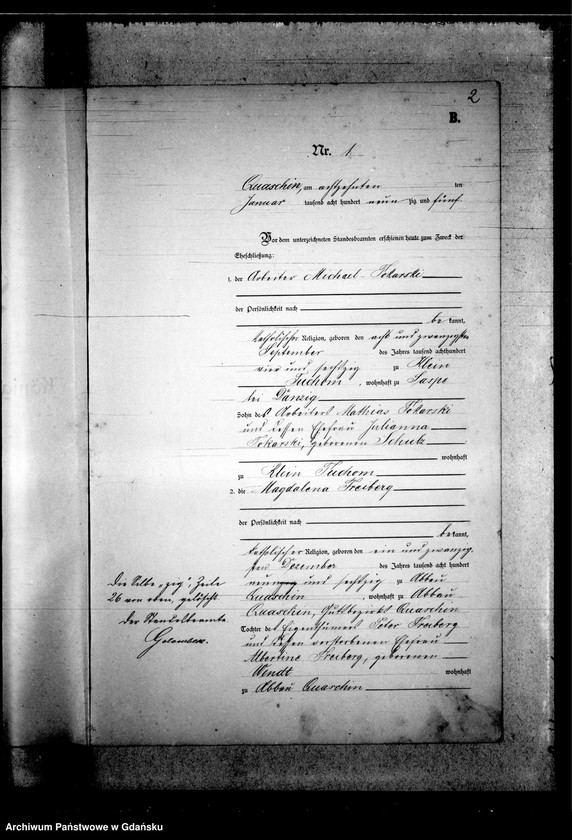 2
B.
Nr. 1
Quaschin, am achtzehnten ten
Januar tausend acht hundert neun zig und fünf
Vor dem unterzeichneten Standesbeamten erschienen heute zum Zweck der
Eheschließung:
1. der Arbeiter Michael Tokarski
der Persönlichkeit nach
be kannt,
katholischer Religion, geboren den acht und zwanzigsten
September des Jahres tausend achthundert
vier und sechszig zu Klein
Tuchom, wohnhaft zu Saspe
bei Danzig
Sohn des Arbeiters Mathias Tokarski
und dessen Ehefrau Julianna
Tokarski, geborenen Schulz
wohnhaft
zu Klein Tuchom
2. die Magdalena Freiberg
der Persönlichkeit nach
be kannt,
katholischer Religion, geboren den ein und zwanzig
sten Dezember des Jahres tausend acht hundert
neun und sechszig zu Abbau
Quaschin, wohnhaft zu Abbau
Quaschin, Gutsbezirks Quaschin
Tochter des Eigenthümers Peter Freiberg
und dessen verstorbenen Ehefrau
Albertine Freiberg, geborenen
Wendt wohnhaft
zu Abbau Quaschin
Die Silbe „zig“, Zeile
26 von oben, gelöscht
Der Standesbeamte
Archiwum Państwowe w Gdańsku